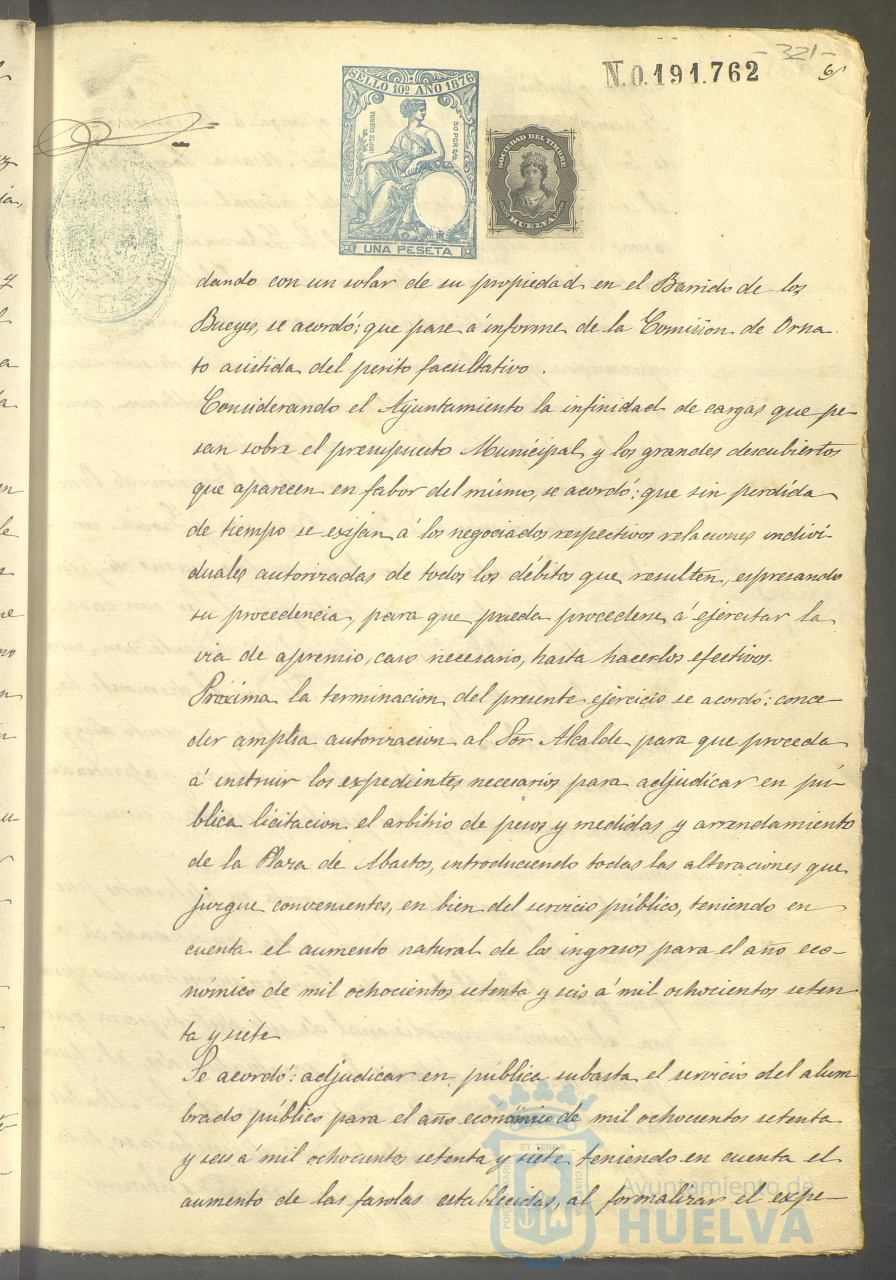 - 321 -
6
N.0.191.762
SELLO 10º AÑO 1876
IMPTO DE GUERRA
50 POR %
UNA PESETA
SOCIEDAD DEL TIMBRE
HUELVA
dando con un solar de su propiedad en el Barrido de los
Bueyes, se acordó; que pase á informe de la Comision de Orna
to asistida del perito facultativo.
Considerando el Ayuntamiento la infinidad de cargas que pe-
san sobre el presupuesto Municipal y los grandes descubiertos
que aparecen en fabor del mismo, se acordó: que sin perdida
de tiempo se exijan á los negociados respectivos relaciones indivi-
duales autorizadas de todos los débitos que resulten, espresando
su procedencia, para que pueda procederse á ejercitar la
via de apremio, caso necesario, hasta hacerlos efectivos.
Próxima la terminacion del presente ejercicio se acordó: conce-
der amplia autorizacion al Sor Alcalde para que proceda
á instruir los expedientes necesarios para adjudicar en pú-
blica licitacion el arbitrio de pesos y medidas y arrendamiento
de la Plaza de Abastos, introduciendo todas las alteraciones que
juzgue convenientes, en bien del servicio público, teniendo en
cuenta el aumento natural de los ingresos para el año eco-
nómico de mil ochocientos setenta y seis á mil ochocientos seten
ta y siete
Se acordó: adjudicar en pública subasta el servicio del alum
brado público para el año económico de mil ochocientos setenta
y seis á mil ochocientos setenta y siete, teniendo en cuenta el
aumento de las farolas establecidas, al formalizar el expe-
Ayuntamiento de
HUELVA